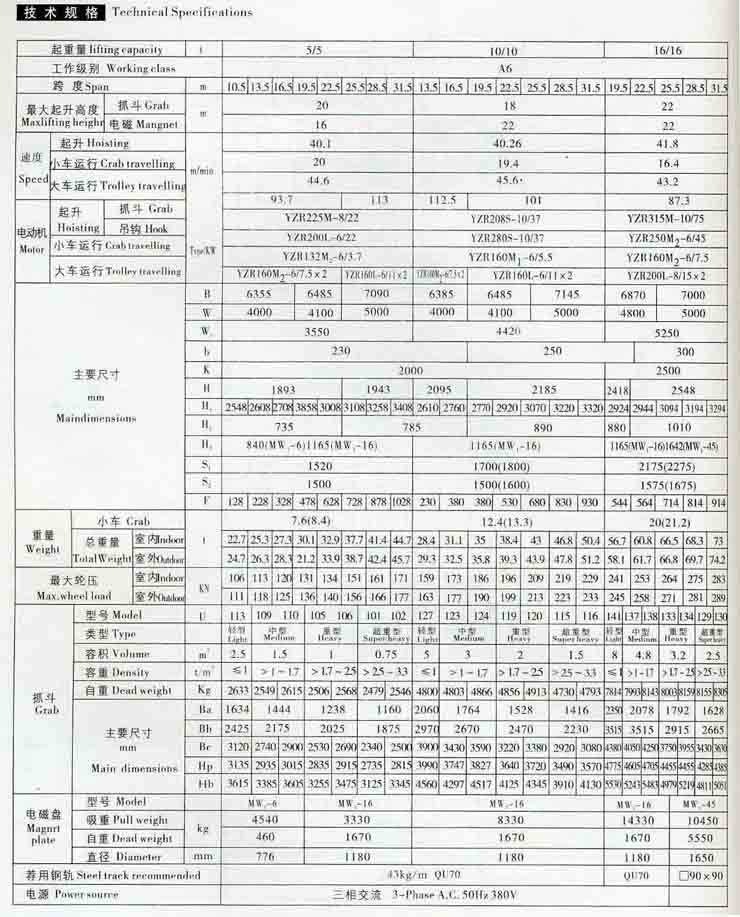 技术规格 Technical Specifications
起重量 lifting capacity t 5/5 10/10 16/16
工作级别 Working class A6
跨 度 Span m 10.5 13.5 16.5 19.5 22.5 25.5 28.5 31.5 13.5 16.5 19.5 22.5 25.5 28.5 31.5 19.5 22.5 25.5 28.5 31.5
最大起升高度 Maxlifting heighr 抓斗 Grab m 20 18 22
电磁 Mangnet 16 22 22
速度 Speed 起升 Hoisting m/min 40.1 40.26 41.8
小车运行 Crab travelling 20 19.4 16.4
大车运行 Trolley travelling 44.6 45.6 43.2
93.7 113 112.5 101 87.3
电动机 Motor 起升 Hoisting 抓斗 Grab Type/KW YZR225M-8/22 YZR208S-10/37 YZR315M-10/75
吊钩 Hook YZR200L-6/22 YZR280S-10/37 YZR250M2-6/45
小车运行 Crab travelling YZR132M2-6/3.7 YZR160M1-6/5.5 YZR160M2-6/7.5
大车运行 Trolley travelling YZR160M2-6/7.5×2 YZR160L-6/11×2 YZR160M2-6/7.5×2 YZR160L-6/11×2 YZR200L-8/15×2
主要尺寸 mm Maindimensions
B 6355 6485 7090 6385 6485 7145 6870 7000
W 4000 4100 5000 4000 4100 5000 4800 5000
W 3550 4420 5250
b 230 250 300
K 2000 2500
H 1893 1943 2095 2185 2418 2548
H 2548 2608 2708 3858 3008 3108 3258 3408 2610 2760 2770 2920 3070 3220 3320 2924 2944 3094 3194 3294
H 735 785 890 880 1010
H 840(MW-6)1165(MW-16) 1165(MW-16) 1165(MW-16)1642(MW-45)
S1 1520 1700(1800) 2175(2275)
S2 1500 1500(1600) 1575(1675)
F 128 228 328 478 628 728 878 1028 230 380 380 530 680 830 930 544 564 714 814 914
重量 Weight 小车 Crab t 7.6(8.4) 12.4(13.3) 20(21.2)
总重量 TotalWeight 室内Indoor 22.7 25.3 27.3 30.1 32.9 37.7 41.4 44.7 28.4 31.1 35 38.4 43 46.8 50.4 56.7 60.8 66.5 68.3 73
室外Outdoor 24.7 26.3 28.3 21.2 33.9 38.7 42.4 45.7 29.3 32.5 35.8 39.3 43.9 47.8 51.2 58.1 61.7 66.8 69.7 74.2
最大轮压 Max.wheel load 室内Indoor KN 106 113 120 131 134 151 161 171 159 173 186 196 209 219 229 241 253 264 275 283
室外Outdoor 111 118 125 136 140 156 166 177 163 177 190 199 213 223 233 245 258 271 281 289
抓斗 Grab
型号 Model U 113 109 110 105 106 101 102 127 123 124 119 120 115 116 141 137 138 133 134 129 130
类型 Type 轻型 Light 中型 Medium 重型 Heavy 超重型 Super heavy 轻型 Light 中型 Medium 重型 Heavy 超重型 Super heavy 轻型 Light 中型 Medium 重型 Heavy 超重型
容积 Volume m³ 2.5 1.5 1 0.75 5 3 2 1.5 8 4.8 3.2 2.5
容重 Density t/m³ ≤1 >1~1.7 >1.7~2.5 >2.5~3.3 ≤1 >1~1.7 >1.7~2.5 >2.5~3.3 ≤1 >1~1.7 >1.7~2.5 >2.5~3.3
自重 Dead weight Kg 2633 2549 2615 2506 2568 2479 2546 4800 4803 4866 4856 4913 4730 4793 7814 7993 8143 8003 8159 8155 8305
主要尺寸 mm Main dimensions
Ba 1634 1444 1238 1160 2060 1764 1528 1416 2350 2078 1792 1628
Bb 2425 2175 2025 1875 2970 2670 2470 2230 3515 3515 2915 2665
Bc 3120 2740 2900 2530 2690 2340 2500 3900 3430 3590 3220 3380 2920 3080 4380 4050 4250 3750 3955 3430 3630
Hp 3135 2935 3015 2835 2915 2735 2815 3990 3747 3827 3640 3720 3490 3570 4775 4605 4705 4455 4455 4285 4385
Hb 3615 3385 3605 3255 3475 3125 3345 4560 4297 4517 4125 4345 3910 4130 5530 5243 5483 4979 5219 4811 5051
电磁盘 Magnrt plate
型号 Model MW-6 MW-16 MW-16 MW-16 MW-45
吸重 Pull weight kg 4540 3330 8330 14330 10450
自重 Dead weight 460 1670 1670 1670 5550
直径 Diameter mm 776 1180 1180 1180 1650
荐用钢轨 Steel track recommended 43kg/m QU70 QU70 □90×90
电源 Power source 三相交流 3-Phase A.C. 50Hz 380V